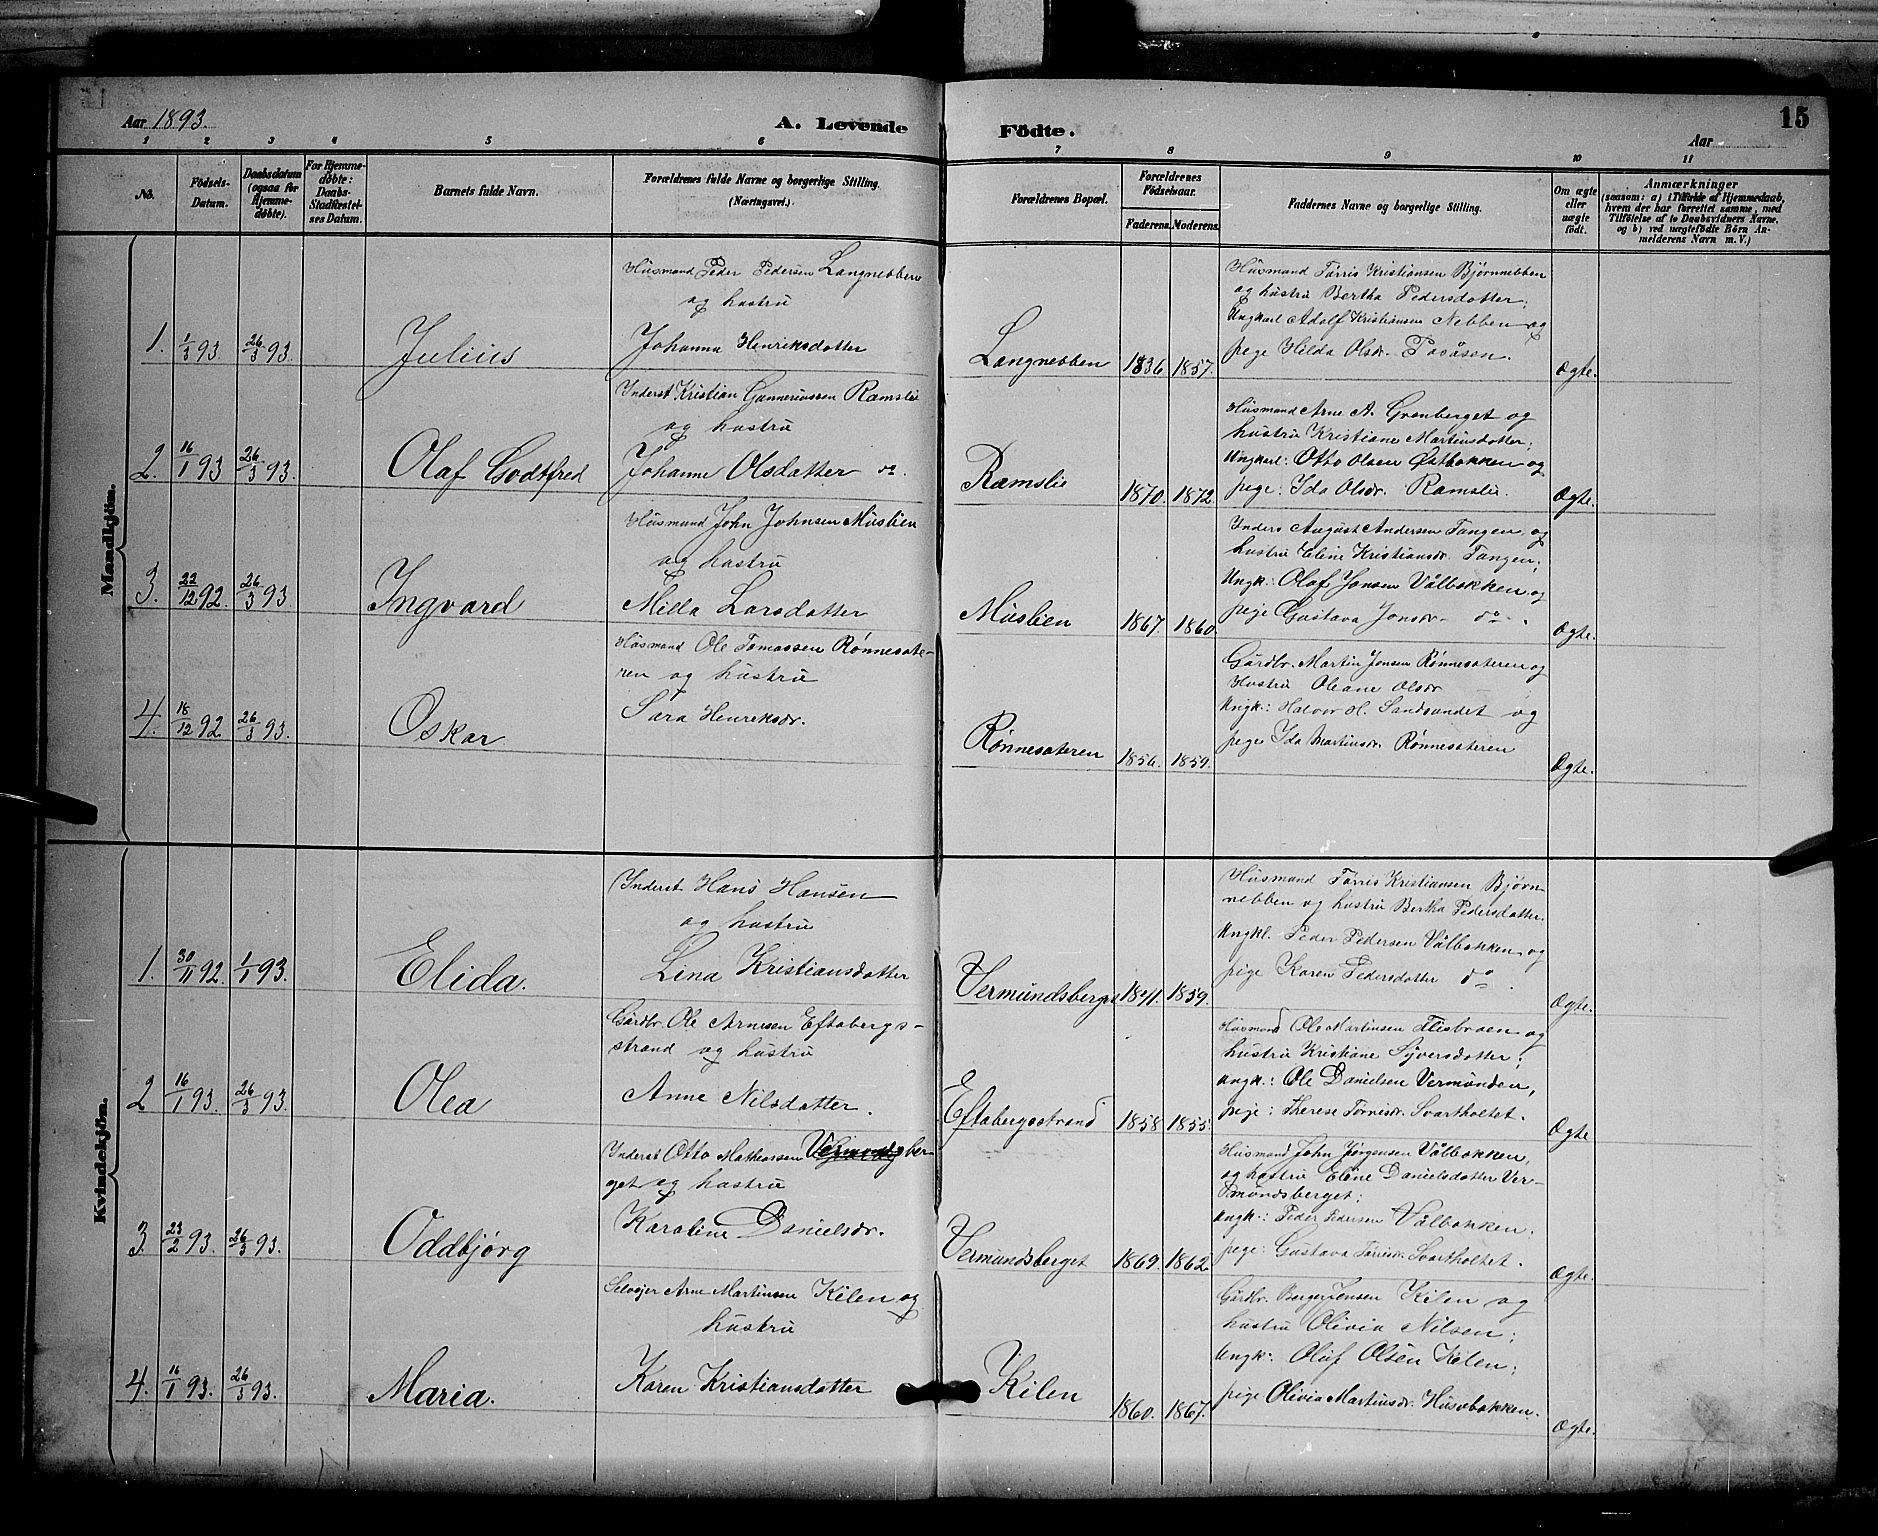 Aar 1893.
A. Levende Födte.
15
Aar
1 2 3 4 5 6 7 8 9 10 11
No.
Födsels-
Datum.
Daabsdatum
(ogsaa for
Hjemme-
döbte).
For Hjemme-
döbte:
Daabs-
Stadfæstel-
ses Datum.
Barnets fulde Navn.
Forældrenes fulde Navne og borgerlige Stilling.
(Næringsvei.)
Forældrenes Bopæl.
Forældrenes
Födselsaar.
Faderens. Moderens.
Faddernes Navne og borgerlige Stilling.
Om ægte
eller
uægte
födt.
Anmærkninger
(saasom: a) i Tilfælde af Hjemmedaab,
hvem der har forrettet samme, med
Tilföielse af to Daabsvidners Navne,
og b) ved uægtefödte Börn An-
melderens Navn m. V.)
Mandkjön.
1. 1/3 93. 26/3 93. Julius
Husmand Peder Pedersen Langnebben
og hustru
Johanna Henriksdatter
Langnebben 1836 1857.
Husmand Tørris Kristiansen Bjørnnebben
og hustru Bertha Pedersdatter;
Ungkarl Adolf Kristiansen Nebben og
pige Hilda Olsdr.
Ægte.
2. 16/1 93 26/3 93. Olaf Godtfred
Inderst Kristian Gunneriussen Ramslie
og hustru
Johanne Olsdatter do.
Ramslie 1870. 1872.
Husmand Arne A. Grønberget og
hustru Kristiane Martinsdatter;
Ungkarl: Otto Olsen Østbakken og
pige: Ida Olsdr. Ramslie.
Ægte.
3. 22/12 92. 26/3 93 Ingvard
Husmand John Johnsen Muslien
og hustru
Milla Larsdatter
Muslien 1867. 1860.
Inders August Andersen Tangen og
hustru Eline Kristiansdr. Tangen;
Ungk: Olaf Jonsen Vålbakken og
pige Gustava Jonsdr. do.
Ægte.
4. 18/12 92. 26/3 93. Oskar
Husmand Ole Tomassen Rønnesæte-
ren og hustru
Sara Henriksdr.
Rønnesæteren 1856. 1859.
Gårdbr. Martin Jonsen Rønnesæteren og
Hustru Oleane Olsdr
Ungk: Halvor H. Sandsundet og
pige Ida Martinsdr. Rønnesæteren
Ægte.
Kvindekjön.
1. 30/11 92. 1/1 93. Elida.
Inderst Hans Hansen
og hustru
Lina Kristiansdatter
Vermundsberget 1841. 1859.
Husmand Tørris Kristiansen Bjørn-
nebben og hustru Bertha Pedersdatter.
Ungkl. Peder Pedersen Vålbakken og
pige Karen Pedersdatter do.
Ægte.
2 16/1 93. 26/3 93. Olea
Gårdbr. Ole Arnesen Eftabergs-
strand og hustru
Anne Nilsdatter.
Eftabergsstrand 1858 1855.
Husmand Ole Martinsen Flisbraen og
hustru Kristiane Syversdatter;
ungk.: Ole Danielsen Vermunden,
pige: Therese Tørrisdr. Svartholtet.
Ægte
3. 23/2 93. 26/3 93. Oddbjørg
Inderst Otto Matheassen Vermundsber-
get og hustru
Karoline Danielsdr.
Vermundsberget 1869. 1862
Husmand John Jørgensen Vålbakken,
og hustru Eline Danielsdatter Ver-
mundsberget;
ungk.: Peder Pedersen Vålbakken.
pige: Gustava Tørrisdr. Svartholtet.
Ægte.
4. 16/1 93. 26/3 93. Maria.
Selvejer Arne Martinsen Kilen og
hustru
Karen Kristiansdatter
Kilen 1860. 1867.
Gårdbr. Berger Jensen Kilen og
hustru Olivia Nilsen;
Ungk: Oluf Olsen Kilen;
pige Olivia Martinsdr. Husubakken.
Ægte.